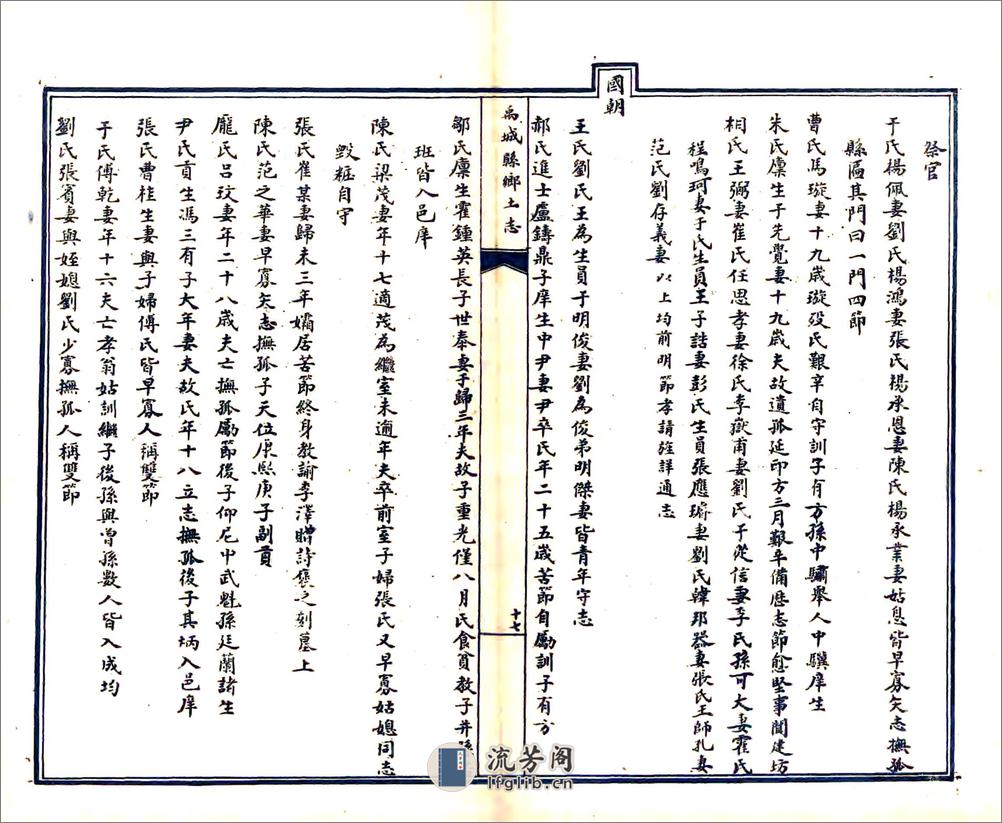 祭官
于氏楊佩妻劉氏楊鴻妻張氏楊承恩妻陳氏楊永業妻姑息皆早寡矢志撫孤
縣匾其門曰一門四節
曹氏馬璇妻十九歲璇歿氏艱辛自守訓子有方孫中驌舉人中驥庠生
朱氏廩生于先覺妻十九歲夫故遺孤延印方三月艱辛備歷志節愈堅事聞建坊
相氏王弼妻崔氏任思孝妻徐氏李嶽甫妻劉氏于從信妻李氏孫可大妻霍氏
程鳴珂妻于氏生員王子誥妻彭氏生員張應璿妻劉氏韓邦器妻張氏王師孔妻
范氏劉存義妻以上均前明節孝請旌詳通志
國朝
王氏劉氏王為生員于明俊妻劉為俊弟明傑妻皆青年守志
郝氏進士盧鑄鼎子庠生中尹妻尹卒氏年二十五歲苦節自勵訓子有方
禹城縣鄉土志
十七
鄒氏廩生霍鍾英長子世奉妻于歸三年夫故子重光僅八月氏食貧教子并
班皆入邑庠
陳氏梁茂妻年十七適茂為繼室未適年夫卒前室子婦張氏又早寡姑媳同志
毀粧自守
張氏崔某妻歸未三年孀居苦節終身教諭李澤贈詩褒之刻墓上
陳氏范之華妻早寡矢志撫孤子天位康熙庚子副貢
龐氏呂玟妻年二十八歲夫亡撫孤勵節後子仰尼中武魁孫廷蘭諸生
尹氏貢生馮三有子大年妻夫故氏年十八立志撫孤後子其炳入邑庠
張氏曹桂生妻與子婦傅氏皆早寡人稱雙節
于氏傅乾妻年十六夫亡孝翁姑訓繼子後孫與曾孫數人皆入成均
劉氏張賓妻與姪媳劉氏少寡撫孤人稱雙節
流芳阁
lfglib.cn